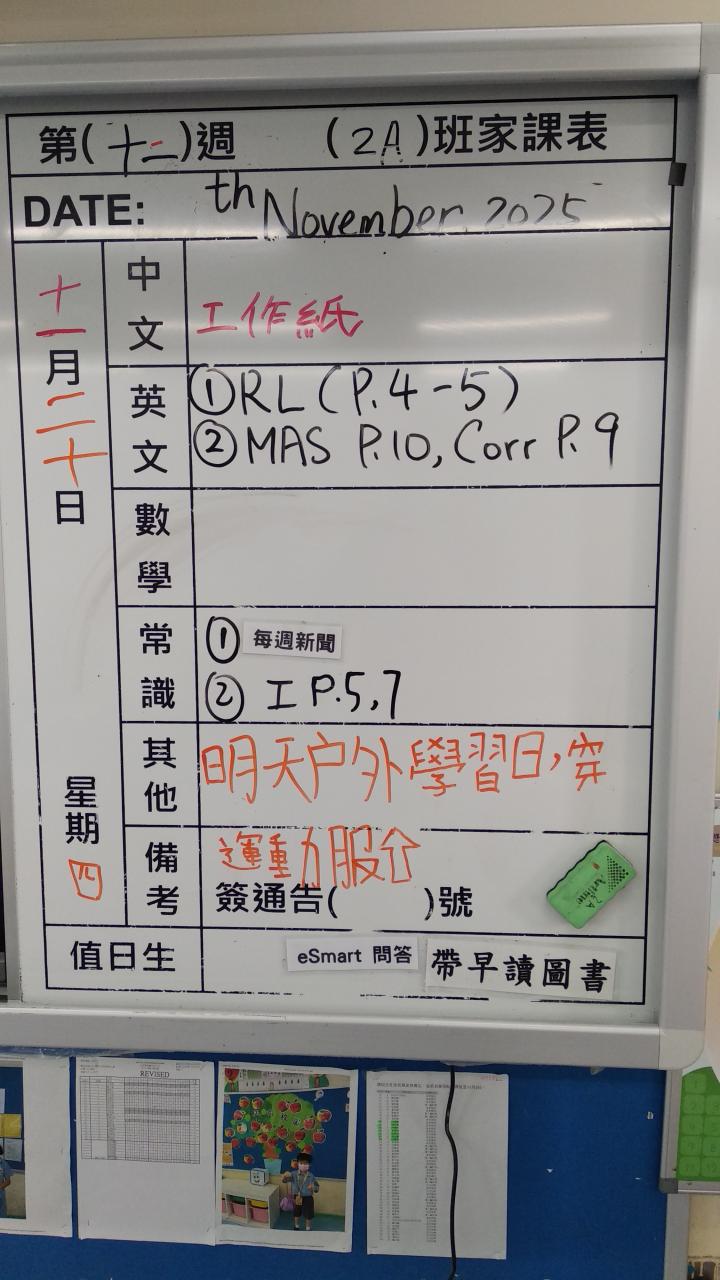 第(十二)週 (2A)班家課表
DATE: th November 2025
十一月二十日
星期四
中文 工作紙
英文 ①RL(P.4-5)
②MAS P.10, Corr P.9
數學
常識 ① 每週新聞
② 工 P.5,7
其他 明天户外學習日,穿
備考 運動服
簽通告( )號
值日生 eSmart 問答 帶早讀圖書
REVISED